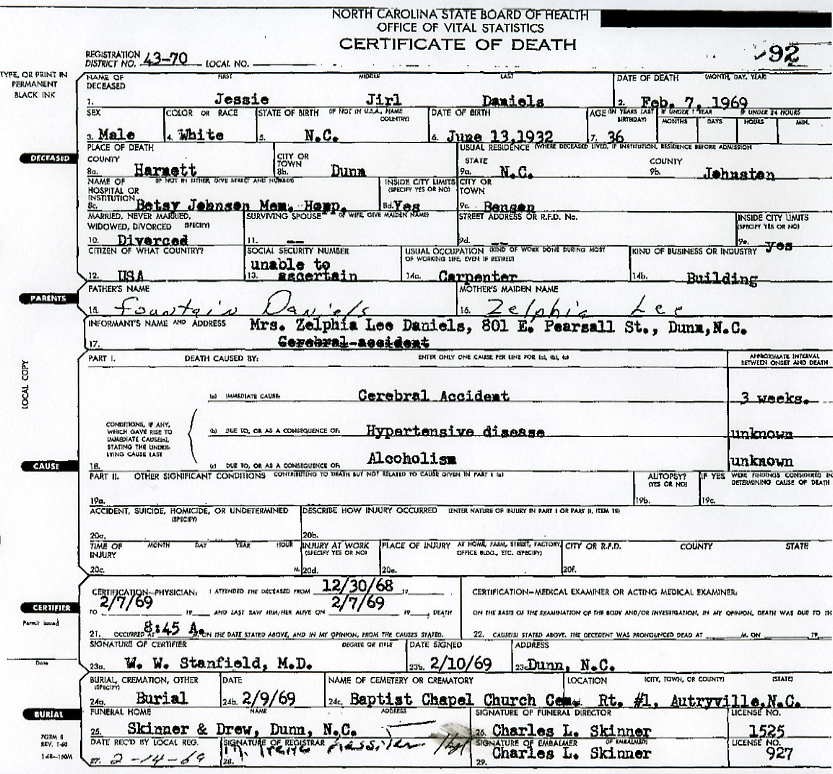 NORTH CAROLINA STATE BOARD OF HEALTH
OFFICE OF VITAL STATISTICS
CERTIFICATE OF DEATH
92
REGISTRATION DISTRICT NO. 43-70 LOCAL NO.
TYPE, OR PRINT IN PERMANENT BLACK INK
NAME OF DECEASED FIRST MIDDLE LAST DATE OF DEATH (MONTH, DAY, YEAR)
1. Jessie Jirl Daniels 2. Feb. 7, 1969
SEX COLOR OR RACE STATE OF BIRTH (IF NOT IN U.S.A., NAME COUNTRY) DATE OF BIRTH AGE (IN YEARS LAST BIRTHDAY) IF UNDER 1 YEAR MONTHS DAYS IF UNDER 24 HOURS HOURS MIN.
3. Male 4. White 5. N.C. 6. June 13,1932 7. 36
DECEASED
PLACE OF DEATH USUAL RESIDENCE (WHERE DECEASED LIVED, IF INSTITUTION, RESIDENCE BEFORE ADMISSION
COUNTY CITY OR TOWN STATE COUNTY
8a. Harnett 8b. Dunn 9a. N.C. 9b. Johnston
NAME OF HOSPITAL OR INSTITUTION (IF NOT IN EITHER, GIVE STREET AND NUMBER) INSIDE CITY LIMITS (SPECIFY YES OR NO) CITY OR TOWN
8c. Betsy Johnson Mem. Hosp. 8d. Yes 9c. Benson
MARRIED, NEVER MARRIED, WIDOWED, DIVORCED (SPECIFY) SURVIVING SPOUSE (IF WIFE, GIVE MAIDEN NAME) STREET ADDRESS OR R.F.D. No. INSIDE CITY LIMITS (SPECIFY YES OR NO)
10. Divorced 11. -- 9d. -- 9e. yes
CITIZEN OF WHAT COUNTRY? SOCIAL SECURITY NUMBER USUAL OCCUPATION (KIND OF WORK DONE DURING MOST OF WORKING LIFE, EVEN IF RETIRED) KIND OF BUSINESS OR INDUSTRY
12. USA 13. unable to ascertain 14a. Carpenter 14b. Building
PARENTS
FATHER'S NAME MOTHER'S MAIDEN NAME
15. Fountain Daniels 16. Zelphia Lee
INFORMANT'S NAME AND ADDRESS Mrs. Zelphia Lee Daniels, 801 E. Pearsall St., Dunn,N.C.
17. Cerebral accident
LOCAL COPY
PART I. DEATH CAUSED BY: ENTER ONLY ONE CAUSE PER LINE FOR (a), (b), (c) APPROXIMATE INTERVAL BETWEEN ONSET AND DEATH
(a) IMMEDIATE CAUSE Cerebral Accident 3 weeks.
CONDITIONS, IF ANY, WHICH GAVE RISE TO IMMEDIATE CAUSE(a), STATING THE UNDERLYING CAUSE LAST
(b) DUE TO, OR AS A CONSEQUENCE OF: Hypertensive disease unknown
18. (c) DUE TO, OR AS A CONSEQUENCE OF: Alcoholism unknown
CAUSE
PART II. OTHER SIGNIFICANT CONDITIONS CONTRIBUTING TO DEATH BUT NOT RELATED TO CAUSE GIVEN IN PART I (a) AUTOPSY? (YES OR NO) IF YES WERE FINDINGS CONSIDERED IN DETERMINING CAUSE OF DEATH
19a. 19b. 19c.
ACCIDENT, SUICIDE, HOMICIDE, OR UNDETERMINED (SPECIFY) DESCRIBE HOW INJURY OCCURRED (ENTER NATURE OF INJURY IN PART I OR PART II, ITEM 18)
20a. 20b.
TIME OF INJURY MONTH DAY YEAR HOUR INJURY AT WORK (SPECIFY YES OR NO) PLACE OF INJURY AT HOME, FARM, STREET, FACTORY, OFFICE BLDG., ETC. (SPECIFY) CITY OR R.F.D. COUNTY STATE
20c. M. 20d. 20e. 20f.
CERTIFICATION-PHYSICIAN: I ATTENDED THE DECEASED FROM 12/30/68 19 CERTIFICATION-MEDICAL EXAMINER OR ACTING MEDICAL EXAMINER:
TO 2/7/69 19 AND LAST SAW HIM/HER ALIVE ON 2/7/69 19 DEATH ON THE BASIS OF THE EXAMINATION OF THE BODY AND/OR INVESTIGATION, IN MY OPINION, DEATH WAS DUE TO
21. OCCURRED AT 8:45 A. ON THE DATE STATED ABOVE, AND IN MY OPINION, FROM THE CAUSES STATED. 22. CAUSE(S) STATED ABOVE. THE DECEDENT WAS PRONOUNCED DEAD AT M. ON 19
CERTIFIER
Permit issued
Date
SIGNATURE OF CERTIFIER DEGREE OR TITLE DATE SIGNED ADDRESS
23a. W. W. Stanfield, M.D. 23b. 2/10/69 23c. Dunn, N.C.
BURIAL, CREMATION, OTHER (SPECIFY) DATE NAME OF CEMETERY OR CREMATORY LOCATION (CITY, TOWN, OR COUNTY) (STATE)
24a. Burial 24b. 2/9/69 24c. Baptist Chapel Church Cem. Rt. #1, Autryville,N.C.
BURIAL
FUNERAL HOME NAME ADDRESS SIGNATURE OF FUNERAL DIRECTOR LICENSE NO.
25. Skinner & Drew, Dunn, N.C. 26. Charles L. Skinner 1525
DATE REC'D BY LOCAL REG. SIGNATURE OF REGISTRAR SIGNATURE OF EMBALMER (IF EMBALMED) LICENSE NO.
27. 2-14-69 28. 29. Charles L. Skinner 927
FORM 8
REV. 1-68